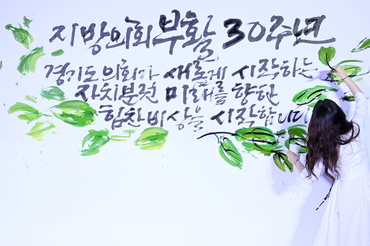 지방의회 부활 30주년
경기도의회가 새롭게 시작하는
자치분권 미래를 향한
힘찬 비상을 시작합니다